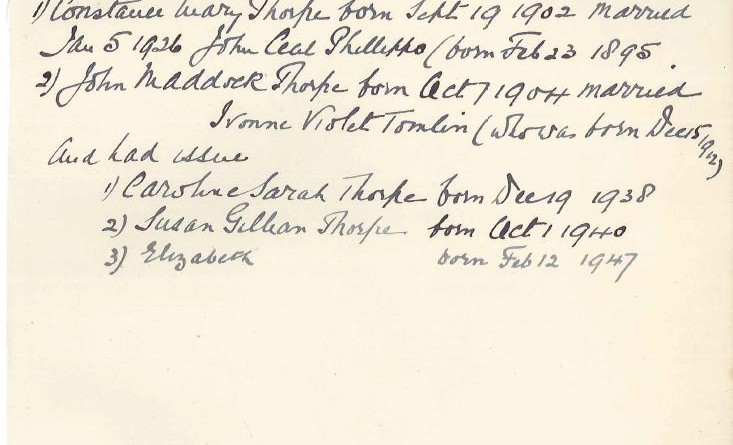 1) Constance Mary Thorpe born Sept 19 1902 married
Jan 5 1926 John Ceal Phellippo (born Feb 23 1895
2) John Maddock Thorpe born Oct 7 1904 married
Ivonne Violet Tomlin (who was born Dec 15 1912)
And had issue
1) Caroline Sarah Thorpe born Dec 19 1938
2) Susan Gillian Thorpe born Oct 1 1940
3) Elizabeth born Feb 12 1947